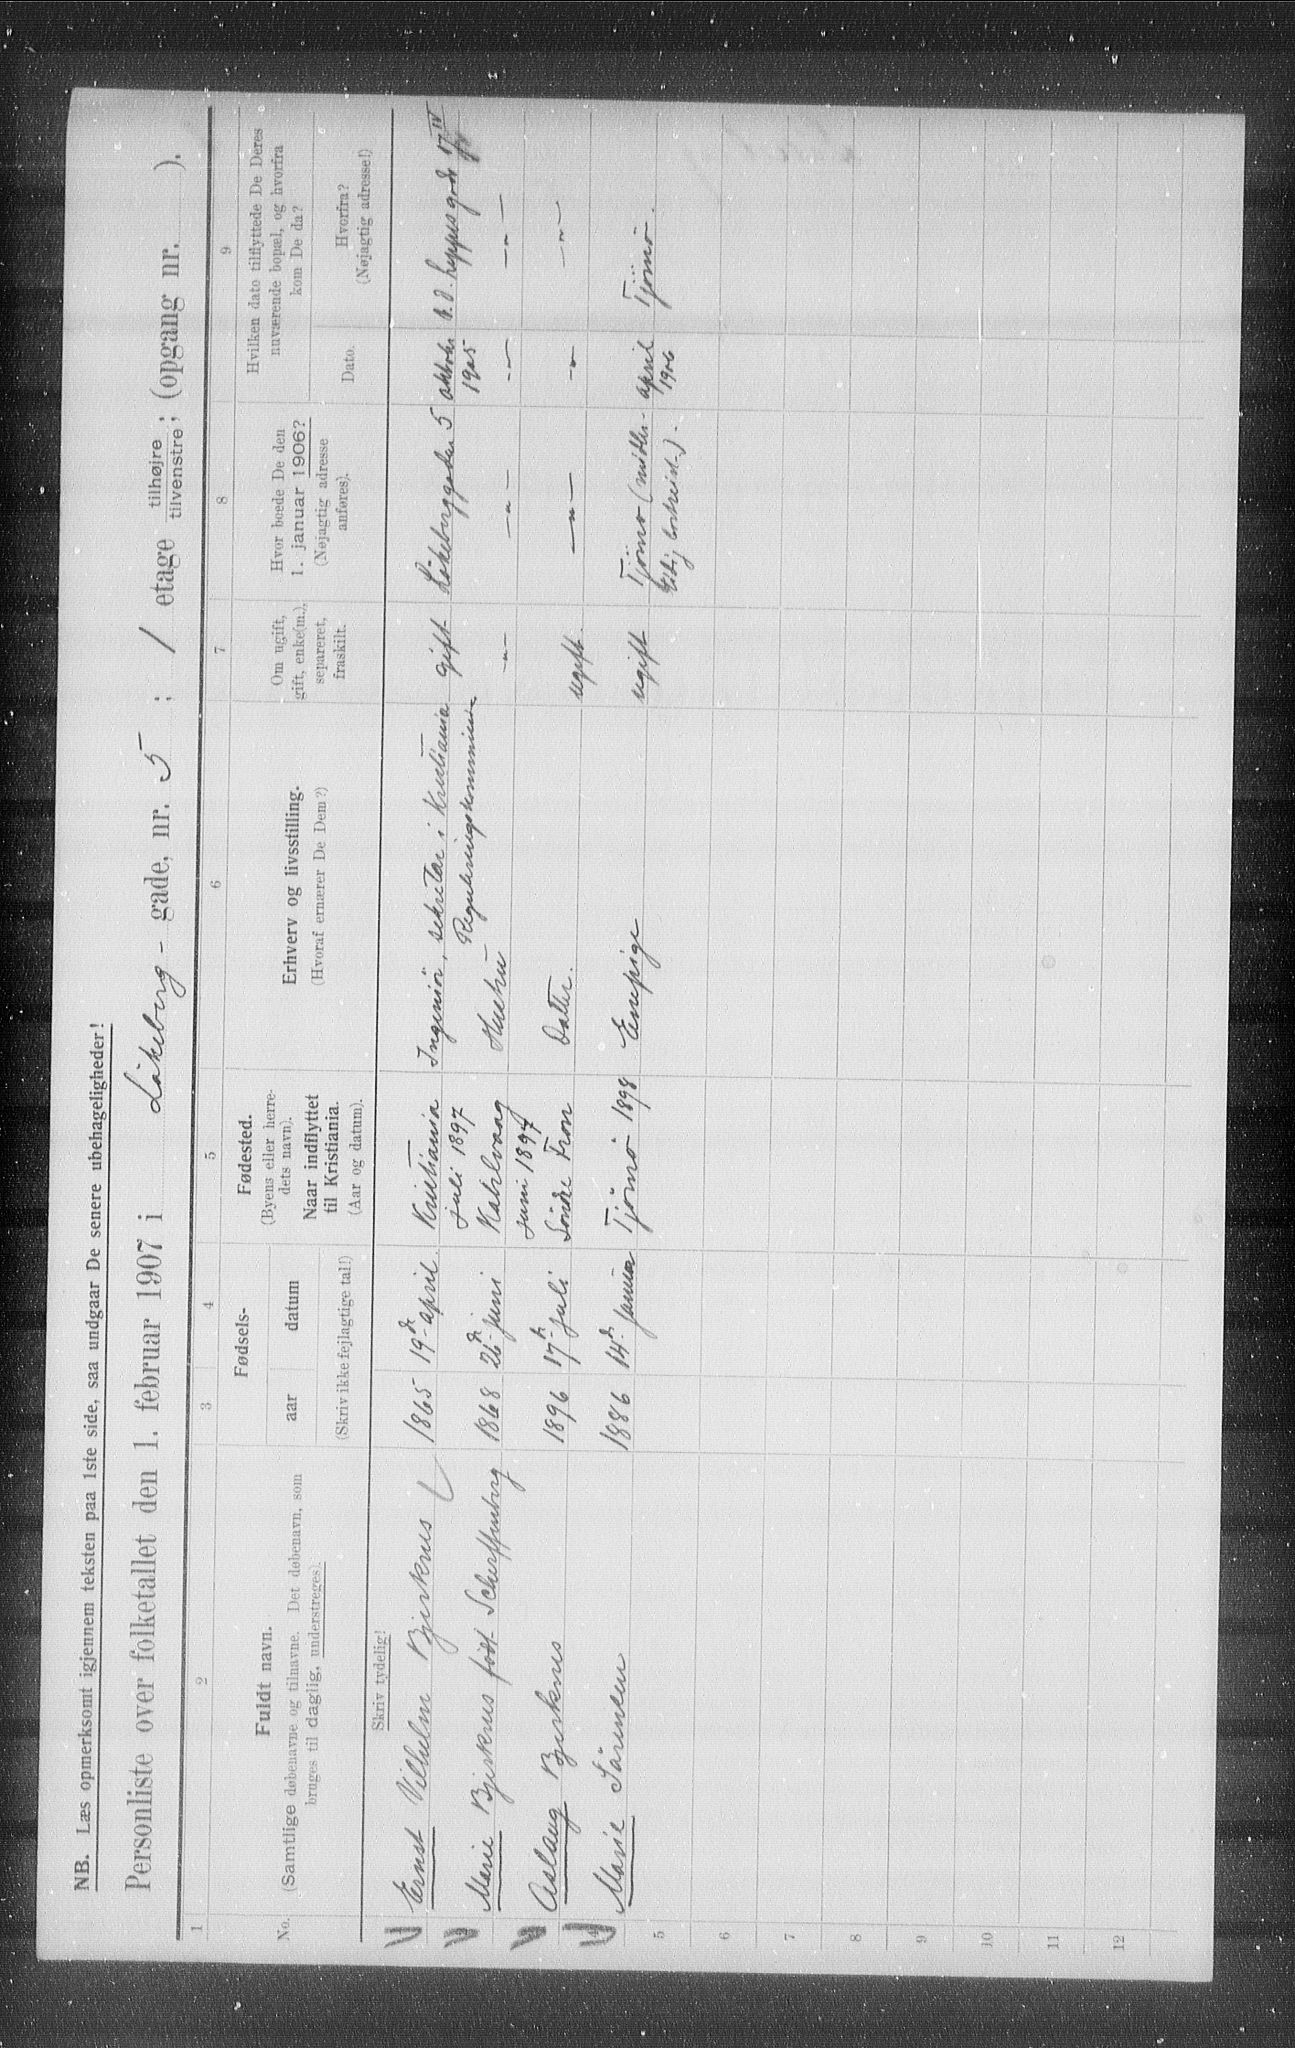 NB. Læs opmerksomt igjennem teksten paa 1ste side, saa undgaar De senere ubehageligheder!
Personliste over folketallet den 1. februar 1907 i Låkeberg- gade, nr. 5 ; 1 etage tilhøjre tilvenstre; (opgang nr. ).
1 2 3 4 5 6 7 8 9
No.
Fuldt navn.
(Samtlige døbenavne og tilnavne. Det døbenavn, som
bruges til daglig, understreges).
Fødsels-
aar datum
(Skriv ikke fejlagtige tal!)
Fødested.
(Byens eller herre-
dets navn).
Naar indflyttet
til Kristiania.
(Aar og datum).
Erhverv og livsstilling.
(Hvoraf ernærer De Dem?)
Om ugift,
gift, enke(m.),
separeret,
fraskilt.
Hvor boede De den
1. januar 1906?
(Nøjagtig adresse
anføres).
Hvilken dato tilflyttede De Deres
nuværende bopæl, og hvorfra
kom De da?
Dato.
Hvorfra?
(Nøjagtig adresse!)
Skriv tydelig!
Ernst Vilhelm Bjerknes 1865 19de april. Kristiania juli 1897 Ingeniör, sekretær i Kristiania Reguleringskommission gift Låkeberggaden 5 oktober 1905 17 IV
Marie Bjerknes född Scharffenberg 1868 26de juni Kalvaag juni 1897 Hustru —"— —"— —"— —"—
Aslaug Bjerknes 1896 17de juli Söndre Fron Datter. ugift. —"— —"— —"—
4 Marie Sörensen 1886 14de januar Tjömö 1898 Enepige ugift Tjömö (midler-
tidig bortreist). april 1906 Tjömö.
5
6
7
8
9
10
11
12